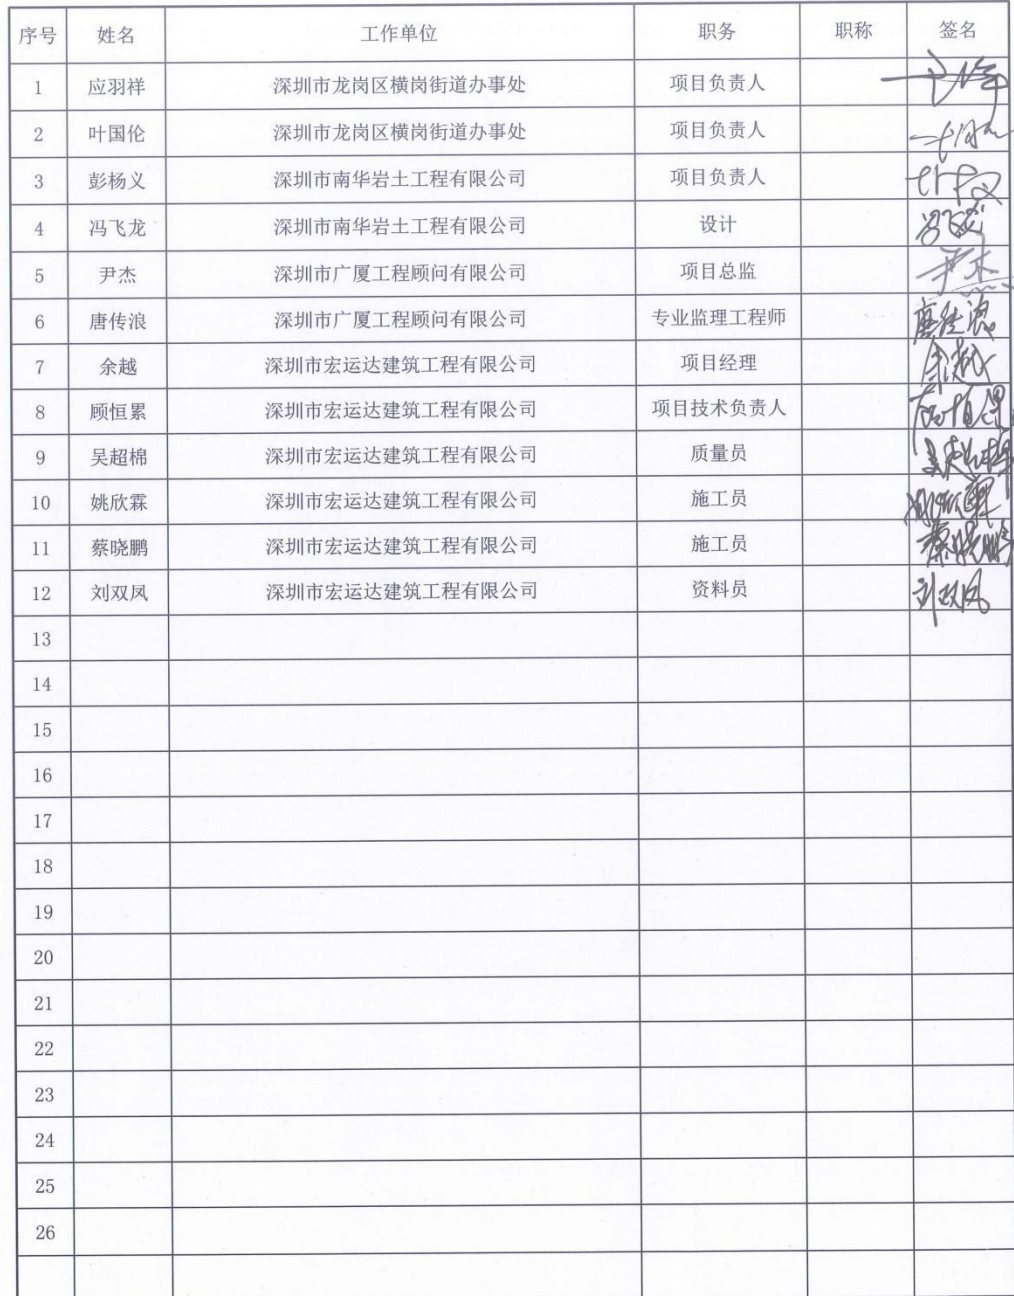 序号 姓名 工作单位 职务 职称 签名
1 应羽祥 深圳市龙岗区横岗街道办事处 项目负责人
2 叶国伦 深圳市龙岗区横岗街道办事处 项目负责人
3 彭杨义 深圳市南华岩土工程有限公司 项目负责人
4 冯飞龙 深圳市南华岩土工程有限公司 设计 冯飞龙
5 尹杰 深圳市广厦工程顾问有限公司 项目总监 尹杰
6 唐传浪 深圳市广厦工程顾问有限公司 专业监理工程师 唐传浪
7 余越 深圳市宏运达建筑工程有限公司 项目经理 余越
8 顾恒累 深圳市宏运达建筑工程有限公司 项目技术负责人
9 吴超棉 深圳市宏运达建筑工程有限公司 质量员 吴超棉
10 姚欣霖 深圳市宏运达建筑工程有限公司 施工员 姚欣霖
11 蔡晓鹏 深圳市宏运达建筑工程有限公司 施工员 蔡晓鹏
12 刘双凤 深圳市宏运达建筑工程有限公司 资料员 刘双凤
13
14
15
16
17
18
19
20
21
22
23
24
25
26